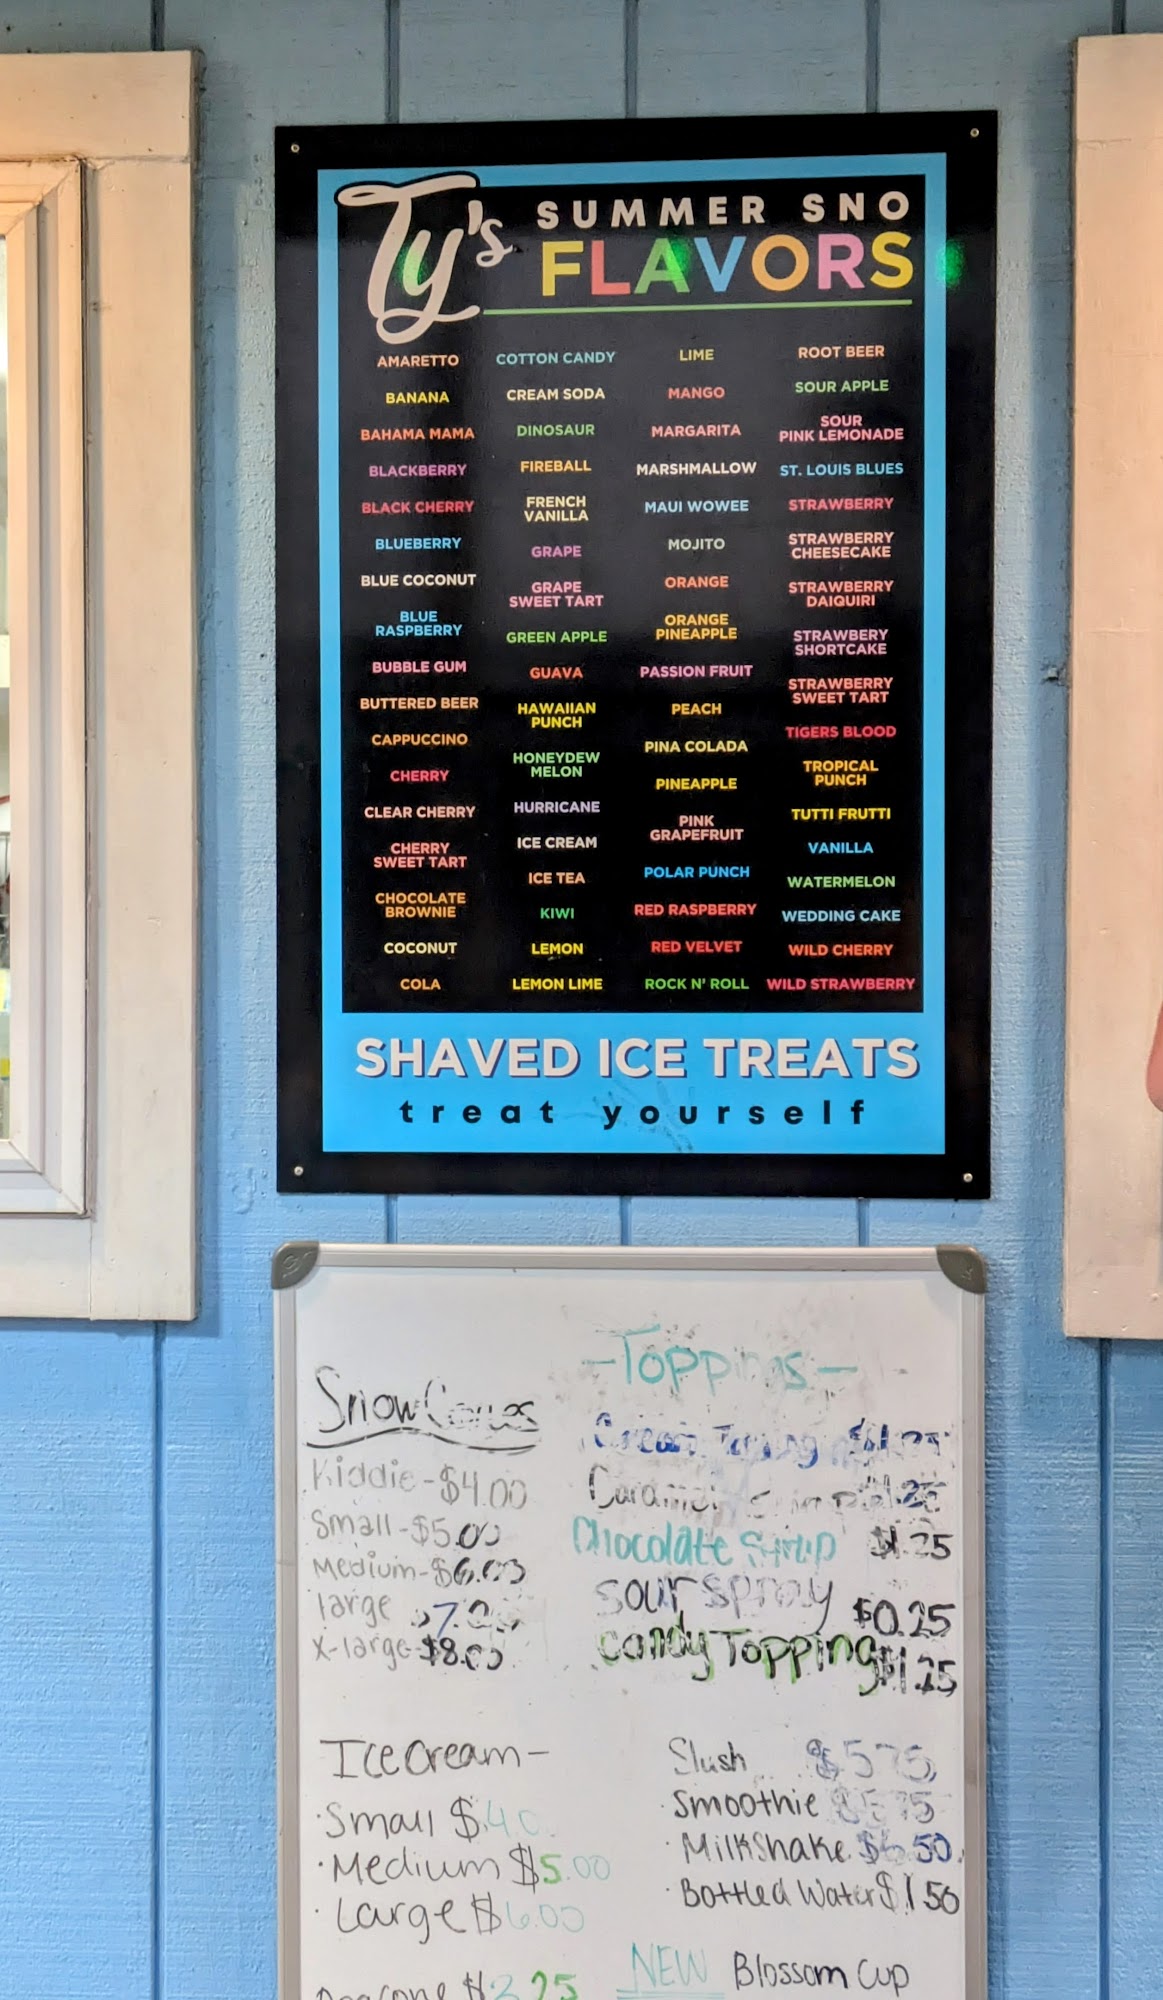 Ty's SUMMER SNO
FLAVORS
AMARETTO
BANANA
BAHAMA MAMA
BLACKBERRY
BLACK CHERRY
BLUEBERRY
BLUE COCONUT
BLUE
RASPBERRY
BUBBLE GUM
BUTTERED BEER
CAPPUCCINO
CHERRY
CLEAR CHERRY
CHERRY
SWEET TART
CHOCOLATE
BROWNIE
COCONUT
COLA
COTTON CANDY
CREAM SODA
DINOSAUR
FIREBALL
FRENCH
VANILLA
GRAPE
GRAPE
SWEET TART
GREEN APPLE
GUAVA
HAWAIIAN
PUNCH
HONEYDEW
MELON
HURRICANE
ICE CREAM
ICE TEA
KIWI
LEMON
LEMON LIME
LIME
MANGO
MARGARITA
MARSHMALLOW
MAUI WOWEE
MOJITO
ORANGE
ORANGE
PINEAPPLE
PASSION FRUIT
PEACH
PINA COLADA
PINEAPPLE
PINK
GRAPEFRUIT
POLAR PUNCH
RED RASPBERRY
RED VELVET
ROCK N' ROLL
ROOT BEER
SOUR APPLE
SOUR
PINK LEMONADE
ST. LOUIS BLUES
STRAWBERRY
STRAWBERRY
CHEESECAKE
STRAWBERRY
DAIQUIRI
STRAWBERY
SHORTCAKE
STRAWBERRY
SWEET TART
TIGERS BLOOD
TROPICAL
PUNCH
TUTTI FRUTTI
VANILLA
WATERMELON
WEDDING CAKE
WILD CHERRY
WILD STRAWBERRY
SHAVED ICE TREATS
treat yourself
Snow Cones
Kiddie - $4.00
Small - $5.00
Medium - $6.00
large 7.0
X-large - $8.00
- Toppings -
Cream Topping $1.25
Caramel $1.25
Chocolate Syrup $1.25
sour spray $0.25
Candy Topping $1.25
Ice Cream -
· Small $4.0
· Medium $5.00
· Large $6.00
$3.25
Slush $5.75
· Smoothie $5.75
· MilkShake $6.50
· Bottled Water $1.50
NEW Blossom Cup